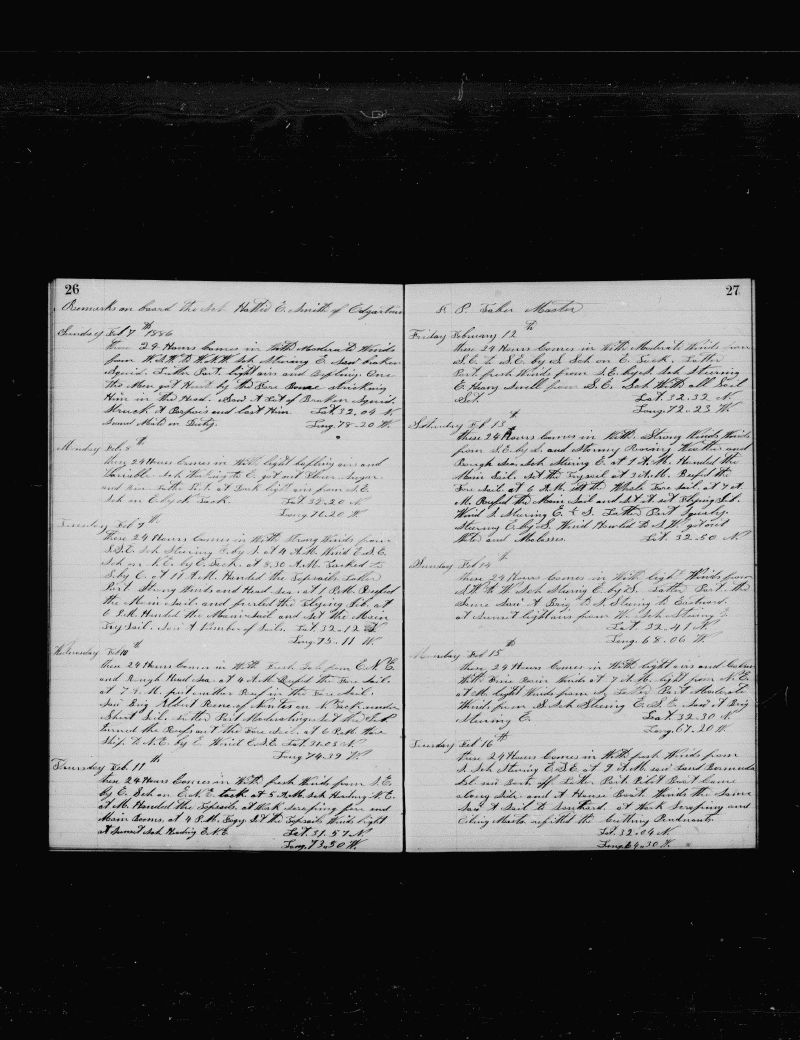 26
Remarks on board the Sch Hattie E. Smith of Edgartown
Sunday Feb 7th 1886
These 24 Hours Comes in With Moderate Winds
from W.S.W. to W.N.W. Sch Steering E. Saw
Squid. Latter Part light airs and Baffling. One
the Men got Hurt by the Fore Boom striking
Him in the Head. Saw A Lot of Broken Squid.
Struck A Porpois and lost Him Lat. 32.04 N
Second Mate on Duty. Long. 78.20 W
Monday Feb. 8th
These 24 Hours Comes in With light baffling airs and
Variable. Sch Heading to E. got out Flour Sugar
and light airs from S.E.
Sch on E by N Tack. Lat 32.20 N
Long 76.20 W
Tuesday Feb 9th
These 24 Hours Comes in With Strong Winds from
S.S.E. Sch Steering E by S. at 4 A.M. Wind E.S.E.
Sch on N.E. by E. Tack. at 8.30 A.M. Tacked to
S. by E. at 11 A.M. Handed the Topsails. Latter
Part Strong Winds and Head Sea. at 1 P.M. Reefed
the Main Sail. and furled the Flying Jib. at
6 P.M. Handed the Main Sail and Set the Main
Try Sail. Saw A Number of Sails. Lat. 32-12 N
Long. 75-11 W
Wednesday Feb 10th
These 24 Hours Comes in With Fresh Gale from E.N.E.
and Rough Head Sea at 4 A.M. Reefed the Fore Sail.
at 7 A.M. put another Reef in the Fore Sail.
Saw Brig Albert of on N Tack under
Short Sail. Latter Part Moderating. Let the
turned the Reefs out the Fore Sail. at 6 P.M. Wore
Ship. to N.E. by E. Wind E.S.E. Lat. 31.03 N
Long 74.39 W
Thursday Feb. 11th
These 24 Hours Comes in With fresh Winds from S.E.
by E. Sch on E.N.E. tack at 5 A.M. Sch Heading N.E.
at M. Handed the Topsails. at Work Scraping fore and
Main Booms. at 4 P.M. Fogy. Set the Topsails Winds light
at Sunset Sch Heading E.N.E. Lat. 31.57 N
Long. 73.50 W.
27
Master
Friday February 12th
These 24 Hours Comes in With Moderate Winds from
S.E. to S.E. by S. Sch on E. Tack. Latter
Part fresh Winds from S.E. by S. Sch Steering
E. Heavy Swell from S.E. Sch With all Sail
Set. Lat. 32.32 N
Long. 72-23 W.
Saturday Feb 13th
These 24 Hours Comes in With Strong Winds
from S.E. by S. and Stormy Rainy Weather and
Rough Sea. Sch Steering E. at 1 A.M. Handed the
Main Sail. Set the Trysail at 3 A.M. Reefed the
Fore Sail. at 6 A.M. Set the Whole Fore Sail. at 7 A.
M. Reefed the Main Sail and Set it. Set Flying Jib.
Wind S. Steering E. Latter Part Squally.
Steering E. by S. Wind Hauled to S.W. got out
and Molasses. Lat. 32.50 N
Sunday Feb 14th
These 24 Hours Comes in With light Winds from
W. Sch Steering E. by S. Latter Part the
Same Saw A Brig to S. Steering to Eastward.
at Sunset light airs from W. Sch Steering E
Lat. 32-41 N
Long. 68.06 W
Monday Feb 15th
These 24 Hours Comes in With light airs and Calm
With Winds at 7 A.M. light from N.E.
at M. light Winds from S. Latter Part Moderate
Winds from S. Sch Steering E.S.E. Saw A Brig
Steering E. Lat. 32.30 N
Long. 67.20 W
Tuesday Feb 16th
These 24 Hours Comes in With fresh Winds from
S. Sch Steering E.S.E. at 9 A.M. saw Land Bermuda
Latter Part Pilot Boat Came
along Side and A Boat. Winds the Same
Saw A Sail to Southard. at Work Scraping and
Oiling Masts. refitted the Cutting Pendants.
Lat. 32.04 N
Long. 64.30 W.